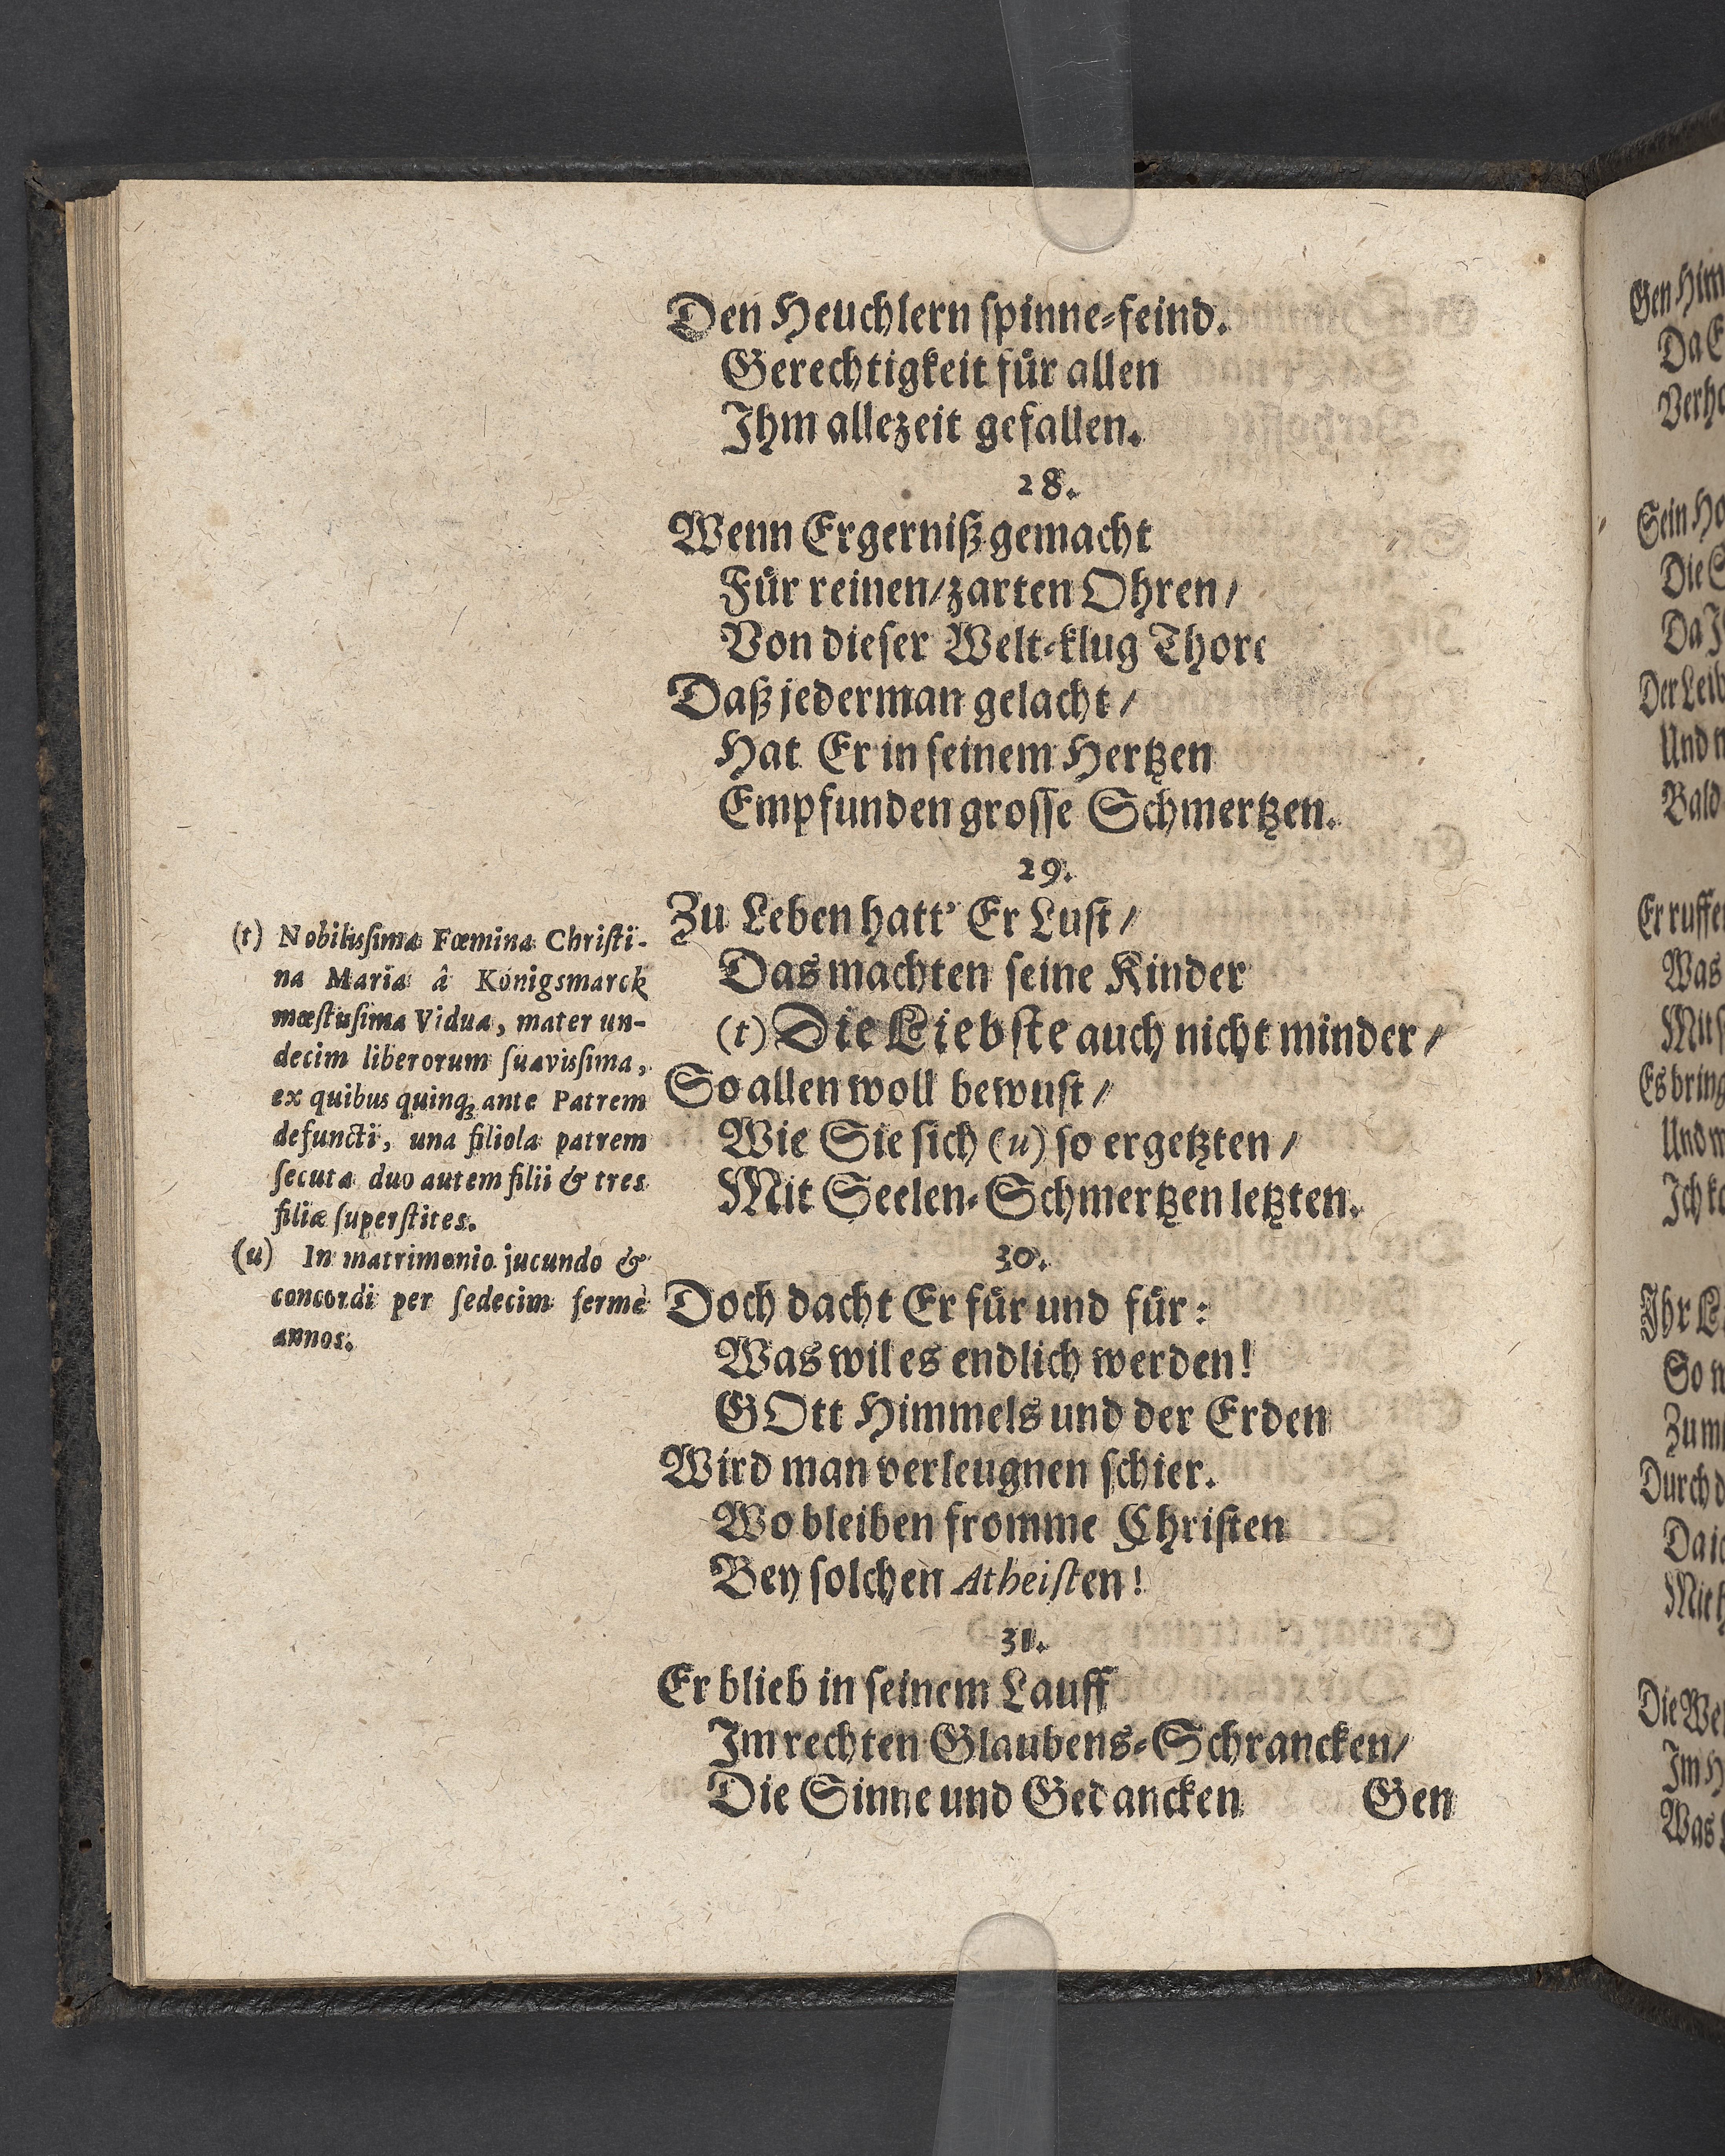 Den Heuchlern ſpinne-feind.
Gerechtigkeit fuͤr allen
Ihm allezeit gefallen.
28.
Wenn Ergerniß gemacht
Fuͤr reinen/ zarten Ohren/
Von dieſer Welt-klug Thore
Daß jederman gelacht/
Hat Er in ſeinem Hertzen
Empfunden groſſe Schmertzen.
29.
Zu Leben hatt' Er Luſt/
Das machten ſeine Kinder
(t) Die Liebſte auch nicht minder/
So allen woll bewuſt/
Wie Sie ſich (u) ſo ergetzten/
Mit Seelen-Schmertzen letzten.
30.
Doch dacht Er fuͤr und fuͤr:
Was wil es endlich werden!
GOtt Himmels und der Erden
Wird man verleugnen ſchier.
Wo bleiben fromme Chriſten
Bey ſolchen Atheiſten!
31.
Er blieb in ſeinem Lauff
Im rechten Glaubens-Schrancken/
Die Sinne und Gedancken
Gen
(t) Nobiliſſima Fœmina Chriſti-
na Maria â Königsmarck
mœſtiſſima Vidua, mater un-
decim liberorum ſuaviſſima,
ex quibus quinq; ante Patrem
defuncti, una filiola patrem
ſecuta duo autem filii & tres
filiæ ſuperſtites.
(u) In matrimonio jucundo &
concordi per ſedecim fermè
annos.
Gen Him
Da E
Verho
Sein Ha
Die S
Da J
Der Leib
Und n
Bald
Er ruffe
Was
Mit ſ
Es bring
Und w
Ich ko
Ihr L
So n
Zum
Durch d
Da ic
Mit h
Die We
Im H
Was